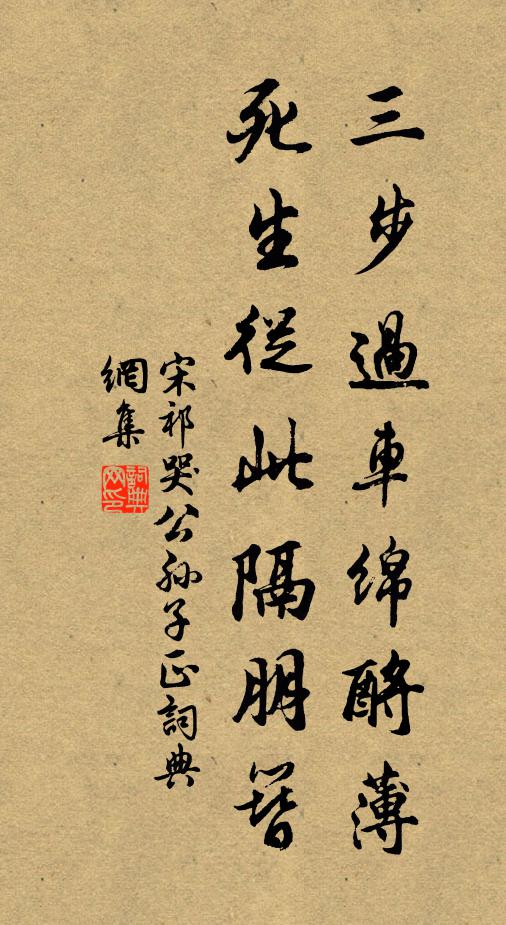 三步過車綿酹薄
死生從此隔朋簪
宋祁哭公孫子正詞典
網集
詞典網印